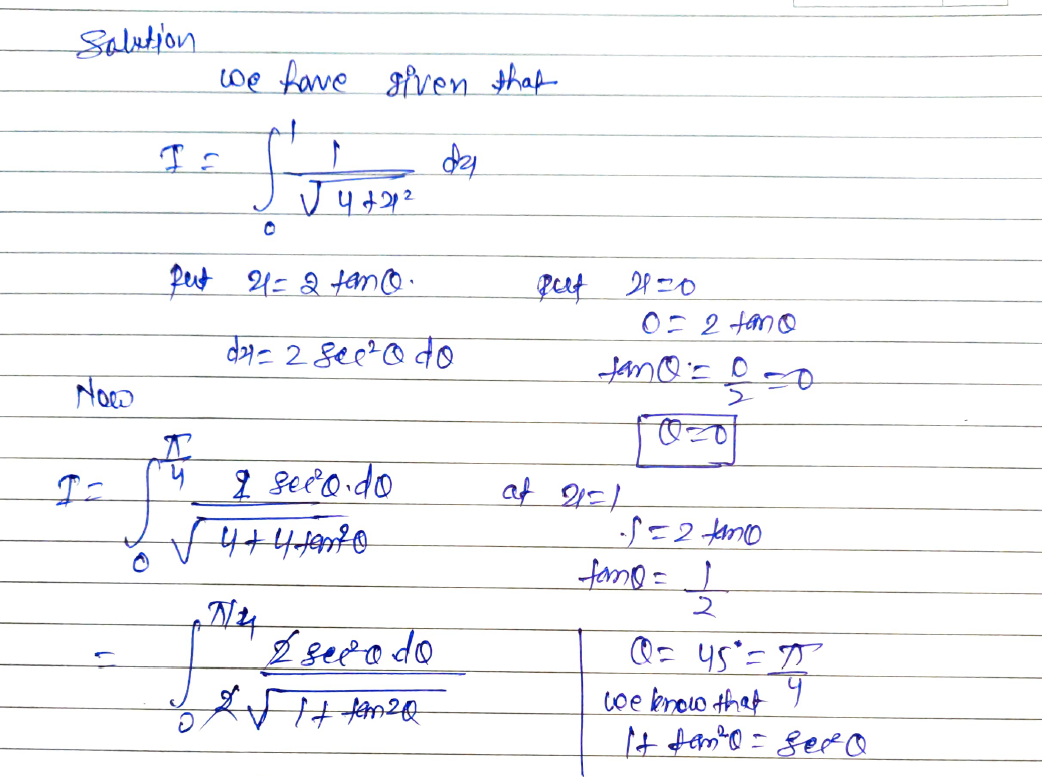 Solution
we have given that
I = ∫₀¹ 1/√(4+x²) dx
put x = 2 tanθ.
dx = 2 sec²θ dθ
put x=0
0 = 2 tanθ
tanθ = 0/2 = 0
θ=0
Now
I = ∫₀^(π/4) 2 sec²θ.dθ/√(4+4tan²θ)
at x=1
1 = 2 tanθ
tanθ = 1/2
= ∫₀^(π/4) 2 sec²θ dθ/2√(1+tan2θ)
θ = 45° = π/4
we know that
1+tan²θ = sec²θ